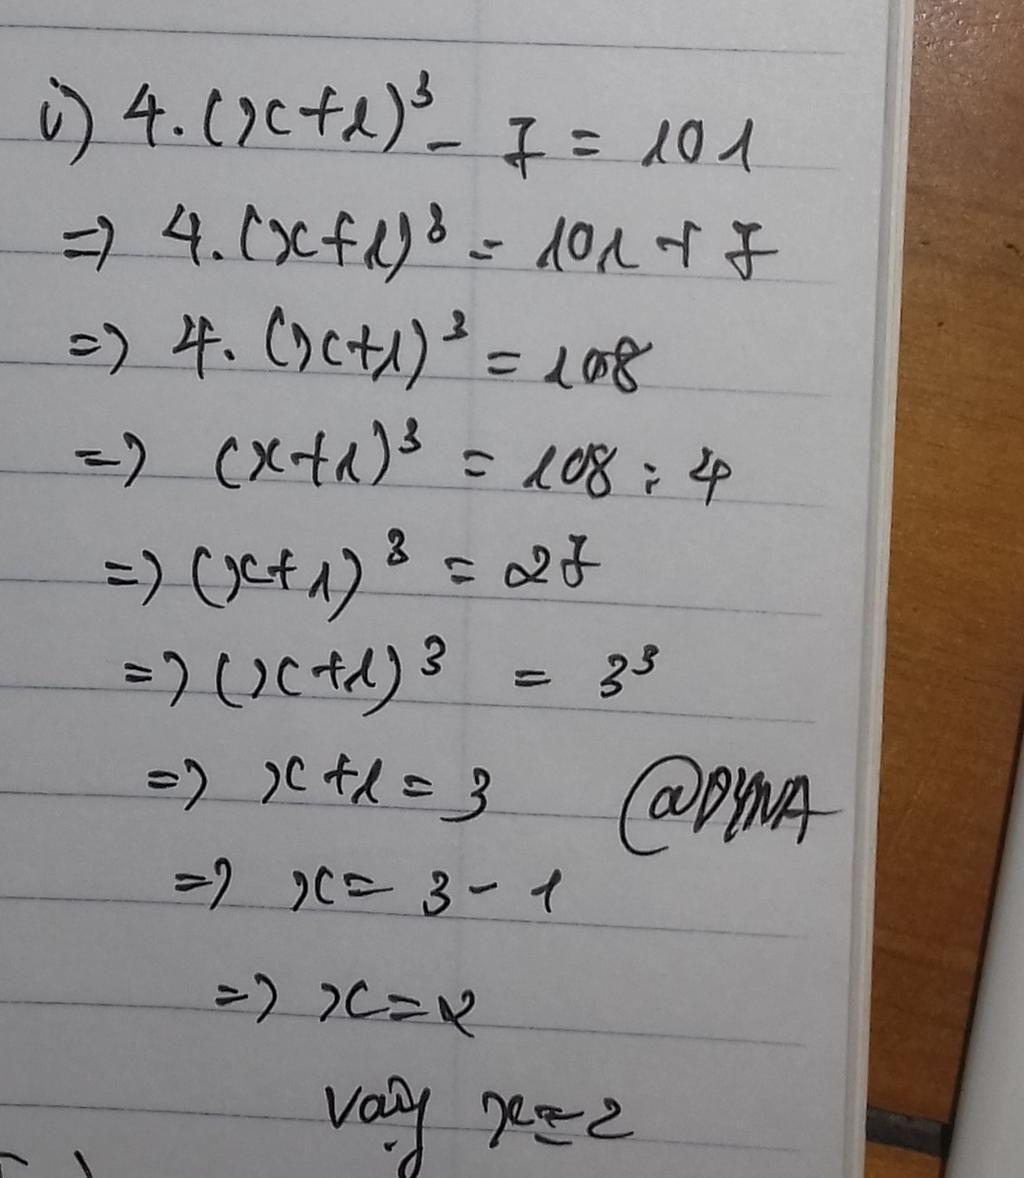 i) 4.(x+1)³ - 7 = 101
=> 4.(x+1)³ = 101 + 7
=> 4.(x+1)³ = 108
=> (x+1)³ = 108 : 4
=> (x+1)³ = 27
=> (x+1)³ = 3³
=> x+1 = 3 @DYNA
=> x = 3 - 1
=> x = 2
Vậy x = 2